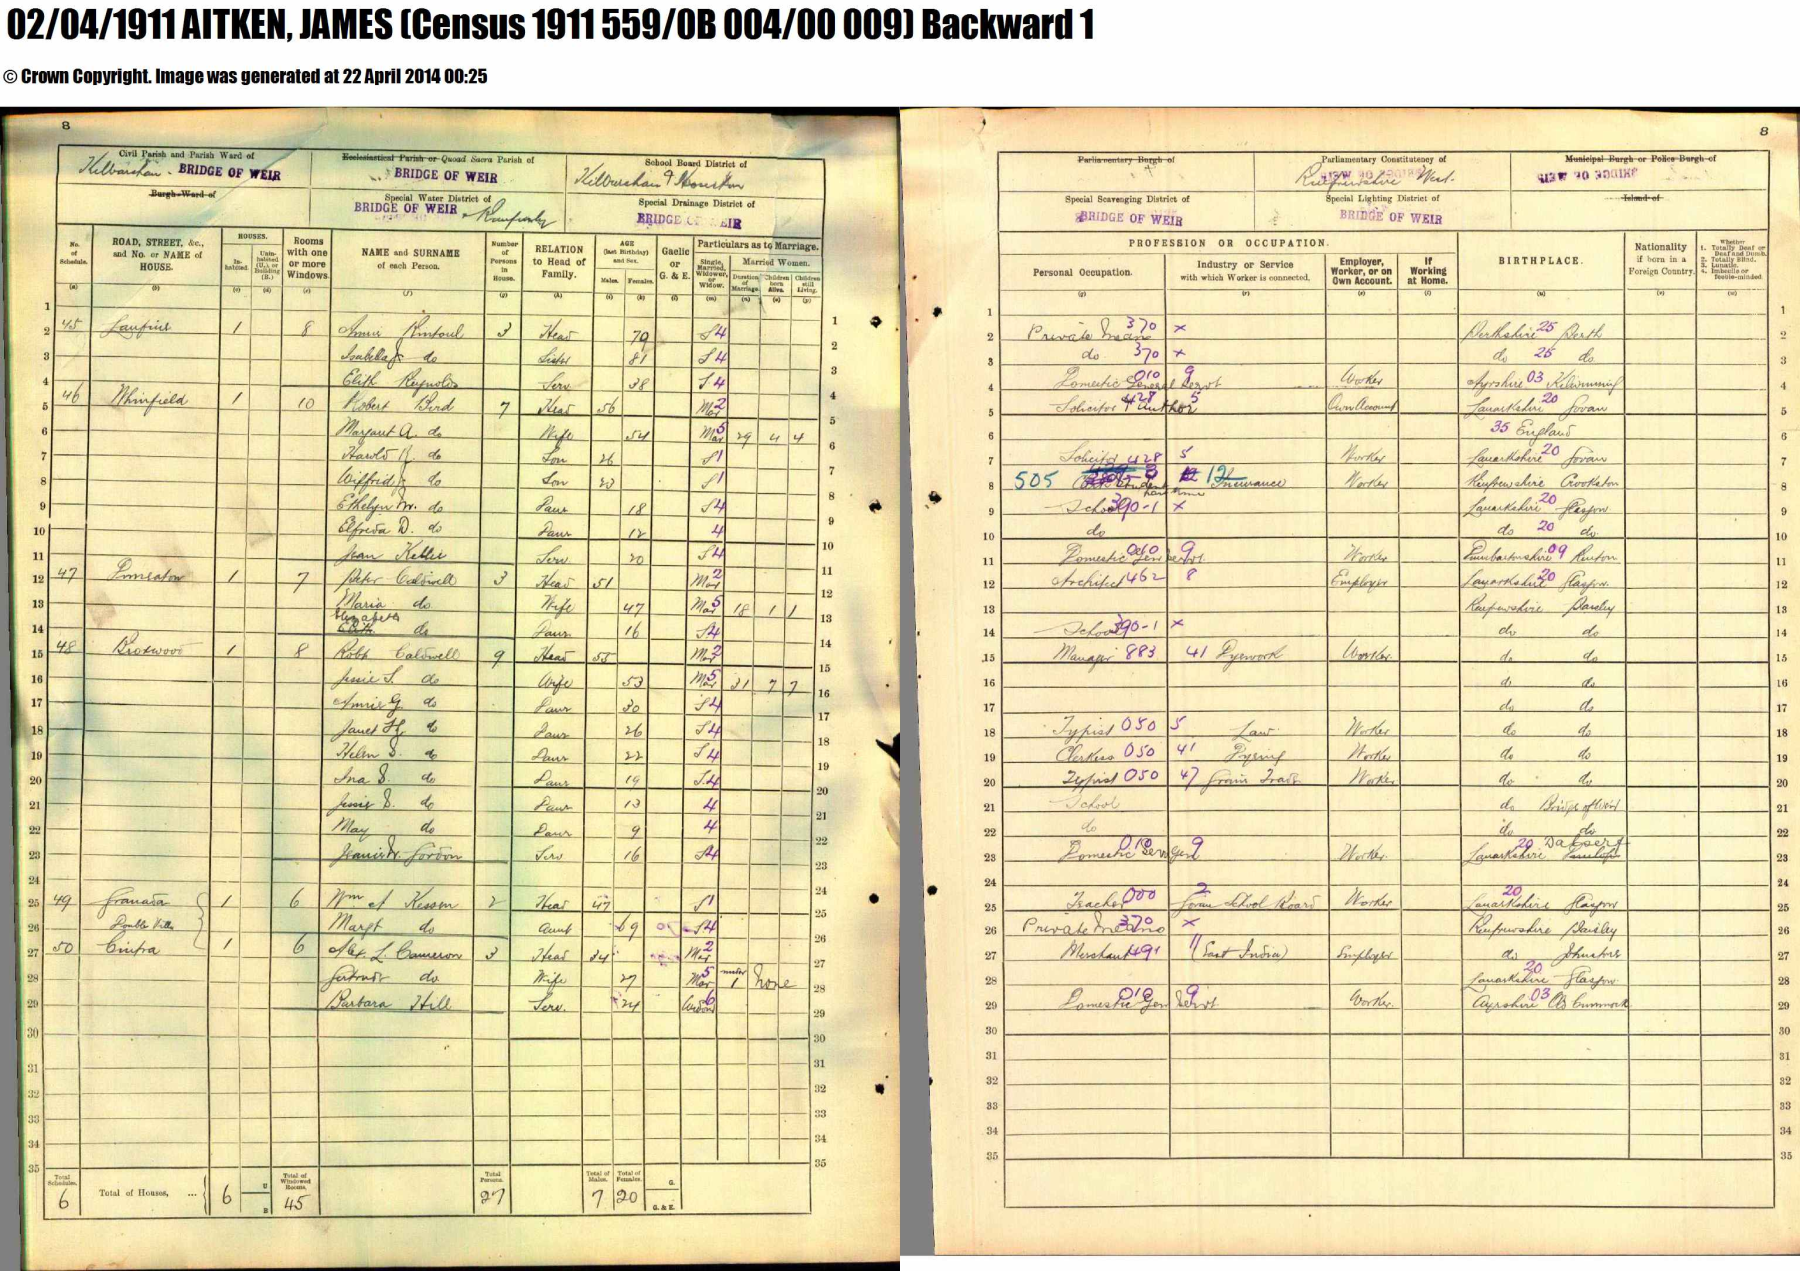 02/04/1911 AITKEN, JAMES (Census 1911 559/0B 004/00 009) Backward 1
© Crown Copyright. Image was generated at 22 April 2014 00:25
8
Civil Parish and Parish Ward of
Kilbarchan - BRIDGE OF WEIR
Burgh Ward of
Ecclesiastical Parish or Quoad Sacra Parish of
BRIDGE OF WEIR
Special Water District of
BRIDGE OF WEIR
School Board District of
Kilbarchan & Houston
Special Drainage District of
BRIDGE OF WEIR
No. of Schedule. (a) ROAD, STREET, &c., and No. or NAME of HOUSE. (b) HOUSES. Inhabited. (c) Uninhabited (U.), or Building (B.) (d) Rooms with one or more Windows. (e) NAME and SURNAME of each Person. (f) Number of Persons in House. (g) RELATION to Head of Family. (h) AGE (last Birthday) and Sex. Males. (i) Females. (k) Gaelic or G. & E. (l) Particulars as to Marriage. Single, Married, Widower, or Widow. (m) Married Women. Duration of Marriage. (n) Children born Alive. (o) Children still Living. (p)
1
2 45 1 8 Annie Rintoul 3 Head 79 S 4
3 Isabella do Sister 81 S 4
4 Elith Reynolds Serv 38 S 4
5 46 Whinfield 1 10 Robert Bird 7 Head 56 Mar 2
6 Margaret A. do Wife 54 Mar 5 29 4 4
7 Harold do Son 26 S 1
8 Wilfrid do Son 23 S 1
9 Ethelyn M. do Daur 18 S 4
10 Elfreda D. do Daur 12 4
11 Jean Serv 20 S 4
12 47 1 7 Peter Caldwell 3 Head 51 Mar 2
13 Maria do Wife 47 Mar 5 18 1 1
14 Elizabeth do Daur 16 S 4
15 48 1 8 Robt Caldwell 9 Head 55 Mar 2
16 Jessie S. do Wife 53 Mar 5 31 7 7
17 Annie G. do Daur 30 S 4
18 Janet do Daur 26 S 4
19 Helen S. do Daur 22 S 4
20 Ina S. do Daur 19 S 4
21 Jessie S. do Daur 13 4
22 May do Daur 9 4
23 Gordon Serv 16 S 4
24
25 49 Granada 1 6 Wm Kesson 2 Head 47 S 1
26 Double Villa Margt do Aunt 69 S 4
27 50 Cintra 1 6 Alex. L. Cameron 3 Head 34 Mar 2
28 Gertrude do Wife 27 Mar 5 under 1 None
29 Barbara Hill Serv. 24 Widow 6
30
31
32
33
34
35
Total Schedules, 6 Total of Houses, ... 6 U B Total of Windowed Rooms, 45 Total Persons, 27 Total of Males, 7 Total of Females, 20 G. G. & E.
8
Parliamentary Burgh of
Parliamentary Constituency of
Renfrewshire West.
BRIDGE OF WEIR
Municipal Burgh or Police Burgh of
BRIDGE OF WEIR
Special Scavenging District of
BRIDGE OF WEIR
Special Lighting District of
BRIDGE OF WEIR
Island of
PROFESSION OR OCCUPATION. Personal Occupation. (q) Industry or Service with which Worker is connected. (r) Employer, Worker, or on Own Account. (s) If Working at Home. (t) BIRTHPLACE. (u) Nationality if born in a Foreign Country. (v) Whether 1. Totally Deaf or Deaf and Dumb. 2. Totally Blind. 3. Lunatic. 4. Imbecile or Feeble-minded. (w)
1
2 Private Means 370 × Perthshire 25 Perth
3 do 370 × do 25 do
4 Domestic General Servt 010 9 Worker Ayrshire 03 Kilwinning
5 Solicitor & Author 428 5 Own Account Lanarkshire 20 Govan
6 35 England
7 Solicitor 428 5 Worker Lanarkshire 20 Govan
8 505 12 Insurance Worker Renfrewshire Crookston
9 School 390-1 × Lanarkshire 20 Glasgow
10 do do 20 do
11 Domestic Gen Servt 010 9 Worker Dumbartonshire 09 Renton
12 Architect 462 8 Employer Lanarkshire 20 Glasgow
13 Renfrewshire Paisley
14 School 390-1 × do do
15 Manager 883 41 Dyework Worker do do
16 do do
17 do do
18 Typist 050 5 Law Worker do do
19 Clerkess 050 41 Dyeing Worker do do
20 Typist 050 47 Grain Trade Worker do do
21 School do Bridge of Weir
22 do do do
23 Domestic Serv Genl 010 9 Worker Lanarkshire 20 Dalserf
24
25 Teacher 000 2 Govan School Board Worker Lanarkshire 20 Glasgow
26 Private Means 370 × Renfrewshire Paisley
27 Merchant 491 11 (East India) Employer do Johnstone
28 Lanarkshire 20 Glasgow
29 Domestic Gen Servt 010 9 Worker Ayrshire 03 Old Cumnock
30
31
32
33
34
35